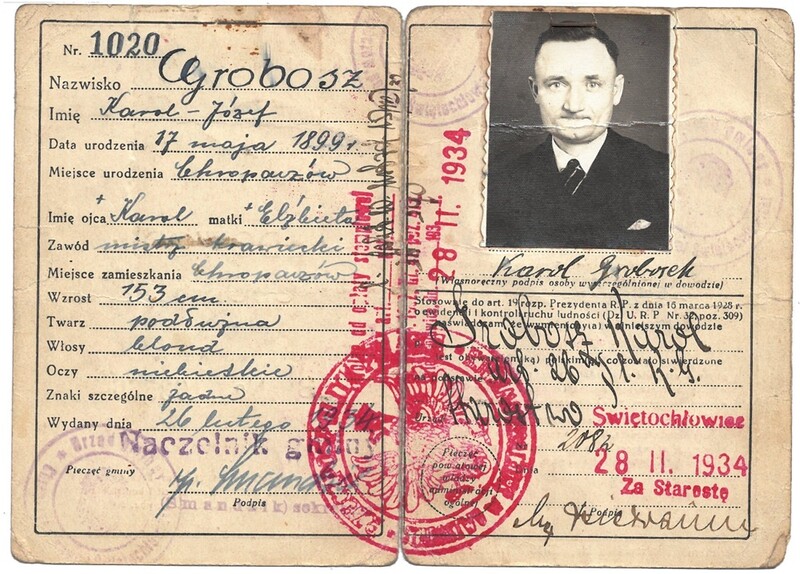 Nr. 1020
Nazwisko Grobosz
Imię Karol-Józef
Data urodzenia 17 maja 1899 r.
Miejsce urodzenia Chropaczów
Imię ojca + Karol matki + Elżbieta
Zawód mistrz krawiecki
Miejsce zamieszkania Chropaczów
Wzrost 153 cm.
Twarz podłużna
Włosy blond
Oczy niebieskie
Znaki szczególne żadne
Wydany dnia 26 lutego 1934
Naczelnik gminy
Pieczęć gminy
Podpis
28 II. 1934
Karol Grobosch
(Własnoręczny podpis osoby wyszczególnionej w dowodzie)
Stosownie do art. 19 rozp. Prezydenta R. P. z dnia 16 marca 1928 r.
o ewidencji i kontroli ruchu ludności (Dz. U. R. P. Nr. 32 poz. 309)
Grobosz Karol
jest obywatelem(ką) polskim(ą) co zostało stwierdzone
na podstawie
Urząd Starostwo Świętochłowice
Nr.
Pieczęć
powiatowej
władzy
administracji
ogólnej
Dnia 28 II. 1934
Za Starostę
Podpis